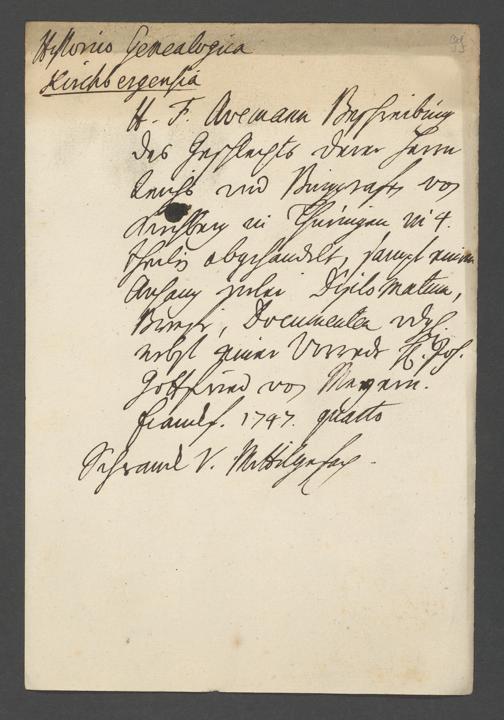 Historico Genealogica
Kirchbergensia
H. F. Avemann Beschreibung
des Geschlechts derer Herrn
Reichs und Burggrafen von
Kirchberg in Thüringen in 4.
theile abgehandelt, sampt einem
Anhang Diplomatum,
Briefe, Documenten
nebst einer Vorrede H. Joh.
Gottfried von Meyern.
Franckf. 1747. quarto
Schranck V. Mittelgefach.